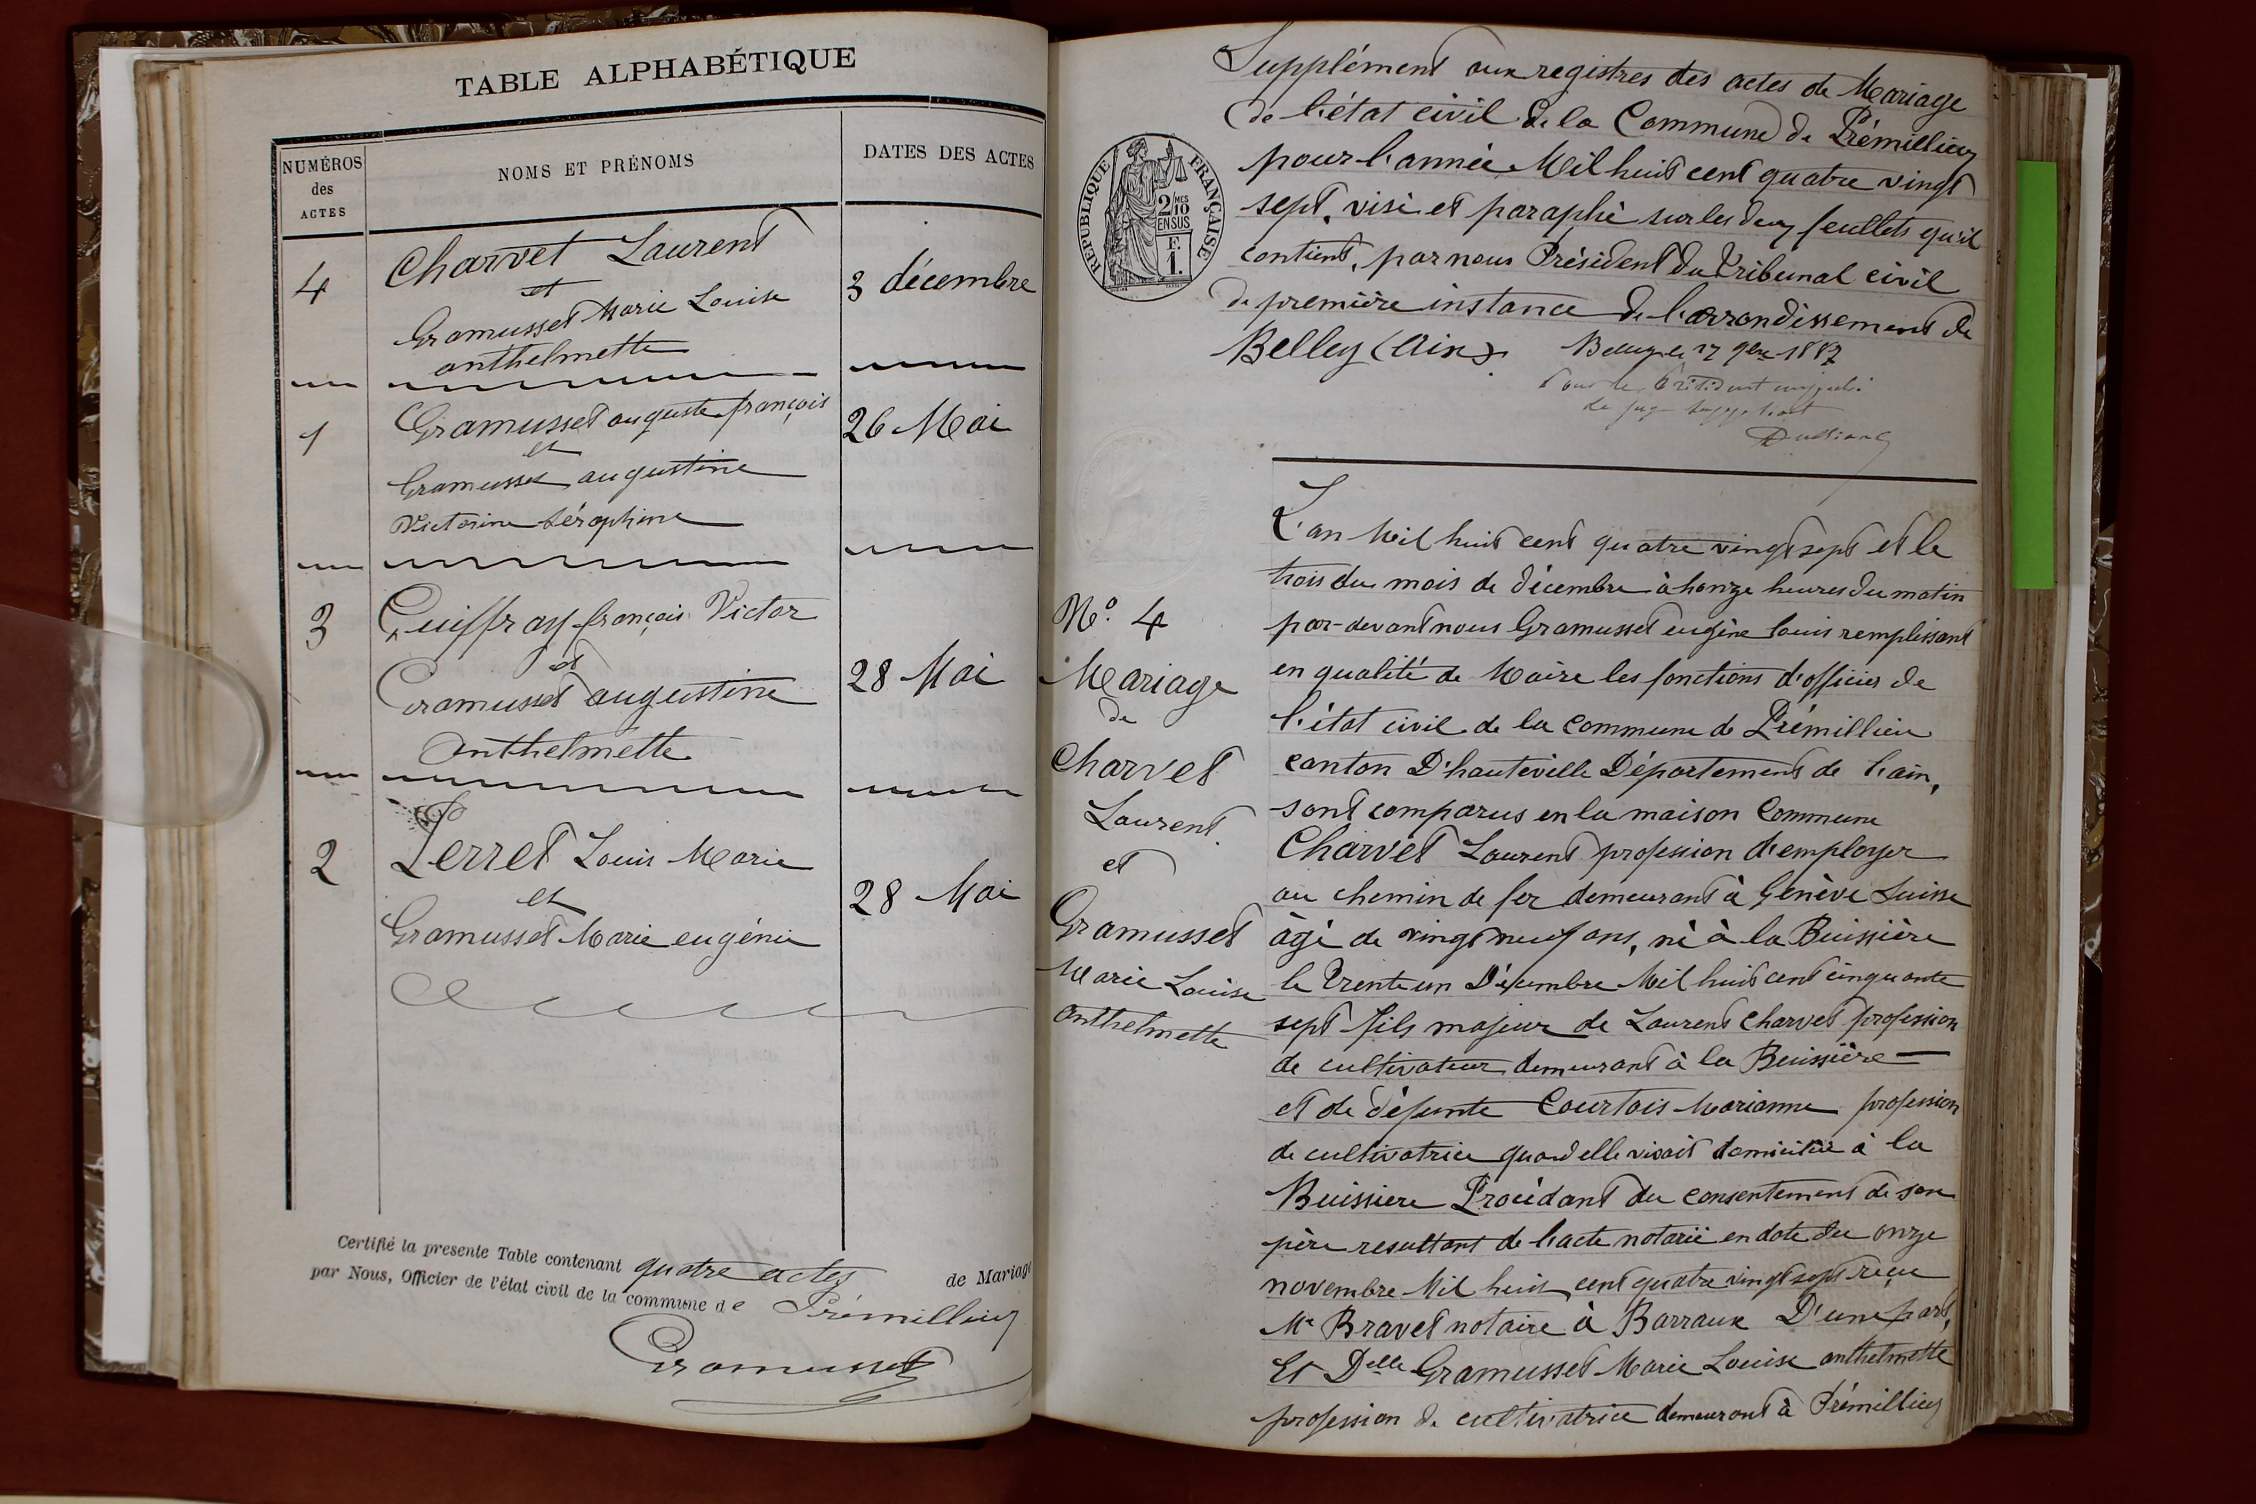 TABLE ALPHABÉTIQUE
NUMÉROS
des
ACTES
NOMS ET PRÉNOMS
DATES DES ACTES
4
Charvet Laurent
et
Gramusset Marie Louise
anthelmette
3 décembre
1
Gramusset auguste françois
et
Gramusset augustine
Victorine Séraphine
26 Mai
3
Guiffray françois Victor
et
Gramusset augustine
anthelmette
28 Mai
2
Perret Louis Marie
et
Gramusset Marie eugénie
28 Mai
Certifié la presente Table contenant quatre actes de Mariage
par Nous, Officier de l'état civil de la commune de Prémillieu
Gramusset
Supplément aux registres des actes de Mariage
de l'état civil de la Commune de Prémillieu
pour l'année Mil huit cent quatre vingt
sept, visé et paraphé sur les deux feuillets qu'il
contient, par nous Président du Tribunal civil
de première instance de l'arrondissement de
Belley (Ain).
RÉPUBLIQUE FRANÇAISE
2 MES
10
EN SUS
F.
1.
Belley le 17 9bre 1887
Pour le Président empêché
le juge suppléant
N.º 4
Mariage
de
Charvet
Laurent
et
Gramusset
Marie Louise
anthelmette
L'an Mil huit cent quatre vingt sept et le
trois du mois de décembre à honze heures du matin
par-devant nous Gramusset eugène louis remplissant
en qualité de Maire les fonctions d'officier de
l'état civil de la commune de Prémillieu
canton D'hauteville Département de l'ain,
sont comparus en la maison Commune
Charvet Laurent profession d'employer
au chemin de fer demeurant à Genève Suisse
âgé de vingt neuf ans, né à la Buissière
le trente un Décembre Mil huit cent cinquante
sept fils majeur de Laurent Charvet profession
de cultivateur demeurant à la Buissière
et de défunte Courtois Marianne profession
de cultivatrice quand elle vivait domiciliée à la
Buissiere Procédant du consentement de son
père resultant de l'acte notarié en date du onze
novembre Mil huit cent quatre vingt sept reçu
Me Bravet notaire à Barraux D'une part,
Et Delle Gramusset Marie Louise anthelmette
profession de cultivatrice demeurant à Prémillieu